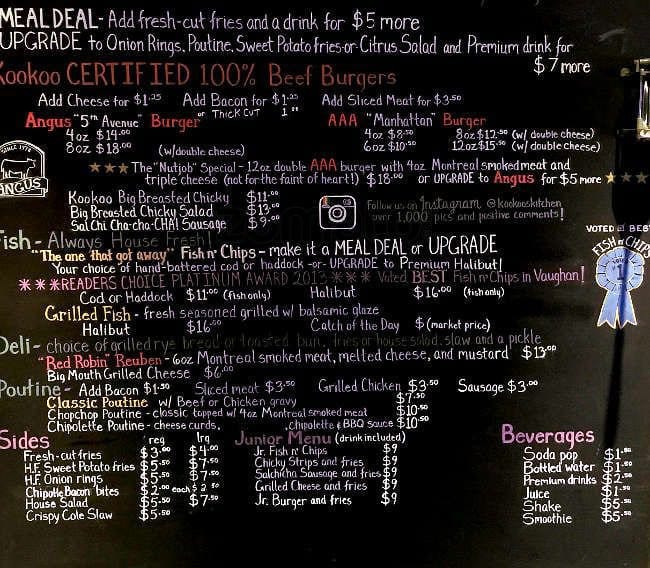 MEAL DEAL - Add fresh-cut fries and a drink for $5 more
UPGRADE to Onion Rings, Poutine, Sweet Potato fries or Citrus Salad and Premium drink for $7 more
Kookoo CERTIFIED 100% Beef Burgers
Add Cheese for $1.25 Add Bacon for $1.25 Add Sliced Meat for $3.50
or THICK CUT
Angus "5th Avenue" Burger AAA "Manhattan" Burger
4oz $14.00 4oz $8.50 8oz $12.50 (w/ double cheese)
8oz $18.00 (w/double cheese) 6oz $10.50 12oz $15.50 (w/ double cheese)
SINCE 1978
ANGUS
The "Nutjob" Special - 12oz double AAA burger with 4oz Montreal smoked meat and
triple cheese (not for the faint of heart!) $18.00 or UPGRADE to Angus for $5 more
Kookoo Big Breasted Chicky $11.00
Big Breasted Chicky Salad $13.00
Sal Chi Cha-cha-CHA! Sausage $9.00
Follow us on Instagram @kookooskitchen
over 1,000 pics and positive comments!
Fish - Always House fresh!
"The one that got away" Fish n' Chips - make it a MEAL DEAL or UPGRADE
Your choice of hand-battered cod or haddock -or- UPGRADE to Premium Halibut!
***READERS CHOICE PLATINUM AWARD 2013*** Voted BEST Fish n' Chips in Vaughan!
Cod or Haddock $11.00 (fish only) Halibut $16.00 (fish only)
VOTED BEST
FISH n' CHIPS
#1
Grilled Fish - fresh seasoned grilled w/ balsamic glaze
Halibut $16.50 Catch of the Day $(market price)
Deli - choice of grilled rye bread or toasted bun, fries or house salad, slaw and a pickle
"Red Robin" Reuben - 6oz Montreal smoked meat, melted cheese, and mustard $13.00
Big Mouth Grilled Cheese $6.00
Poutine - Add Bacon $1.50 Sliced meat $3.50 Grilled Chicken $3.50 Sausage $3.00
Classic Poutine w/ Beef or Chicken gravy $7.50
Chopchop Poutine - classic topped w/ 4oz Montreal smoked meat $10.50
Chipolette Poutine - cheese curds, chipolette & BBQ sauce $10.50
Sides reg lrg
Fresh-cut fries $3.00 $4.00
H.F. Sweet Potato fries $5.50 $7.50
H.F. Onion rings $5.50 $7.50
Chipolte Bacon bites $2.00 each $2.50
House Salad $5.50 $7.50
Crispy Cole Slaw $5.50
Junior Menu (drink included)
Jr. Fish n' Chips $9
Chicky Strips and fries $9
Salchicha Sausage and fries $9
Grilled Cheese and fries $9
Jr. Burger and fries $9
Beverages
Soda pop $1.50
Bottled water $1.50
Premium drinks $2.50
Juice $1.50
Shake $5.50
Smoothie $5.50